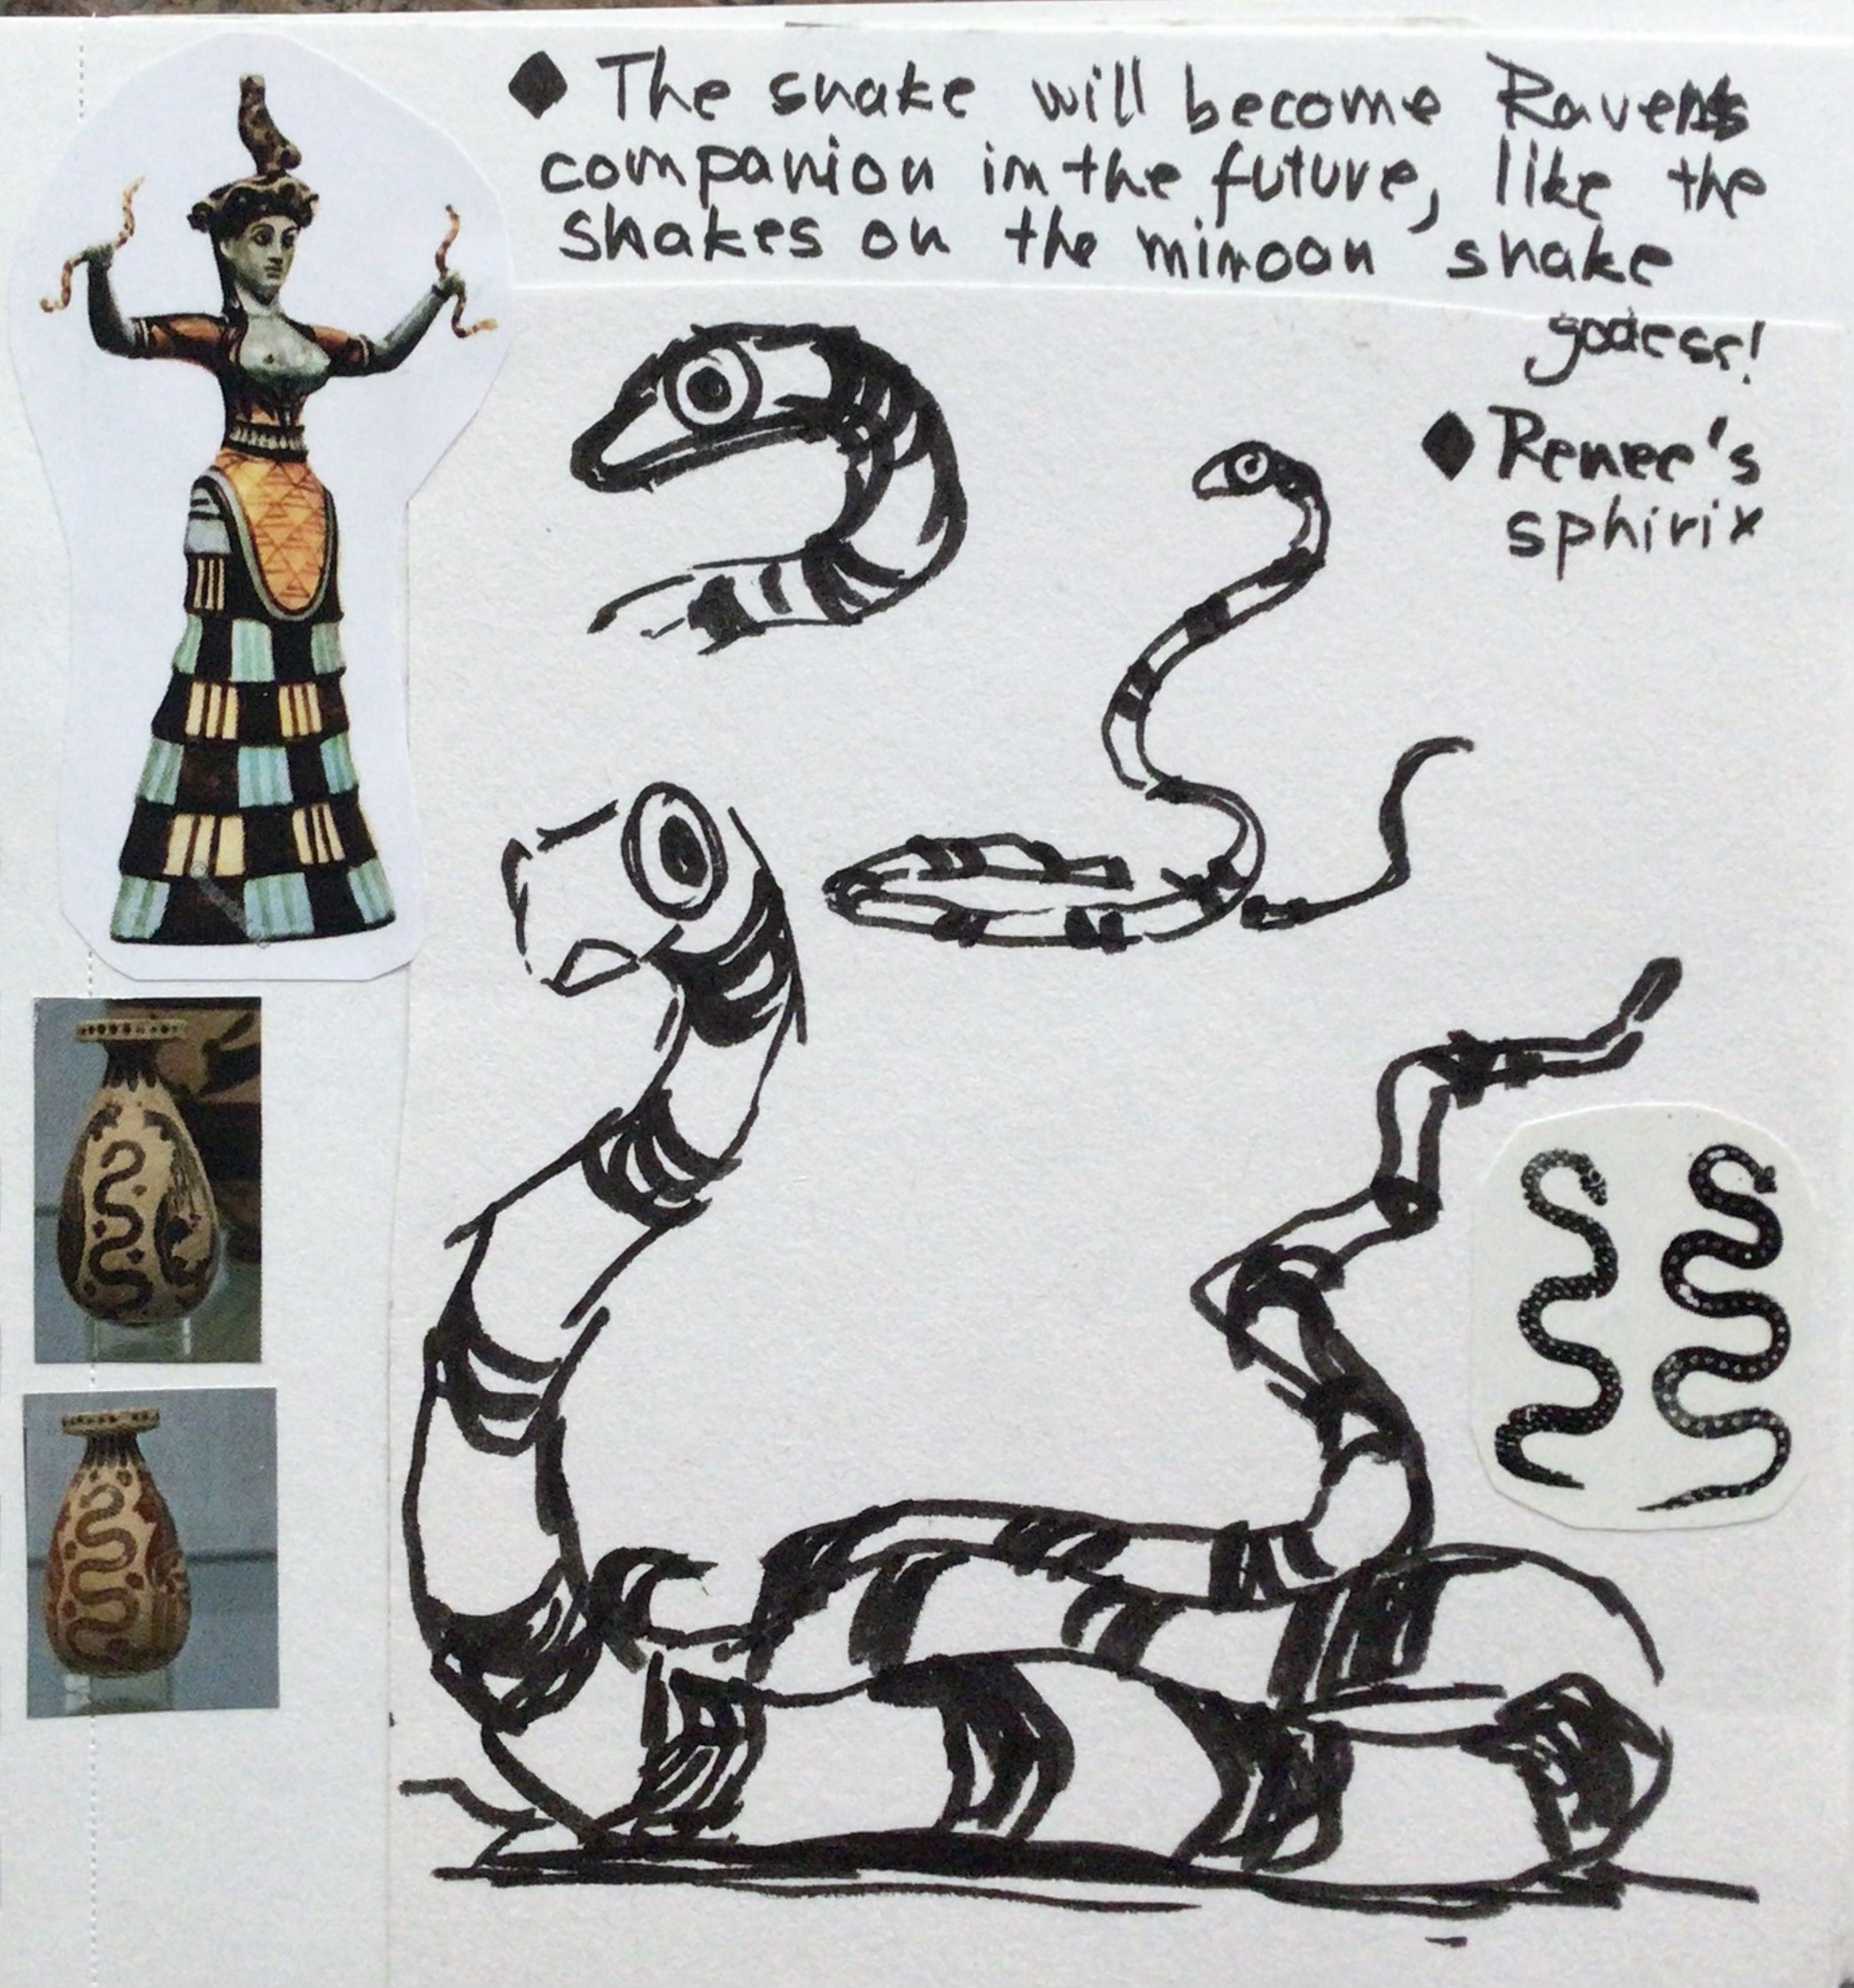 The snake will become Ravens
companion in the future, like the
snakes on the minoan snake
godess!
Renee's
sphinx